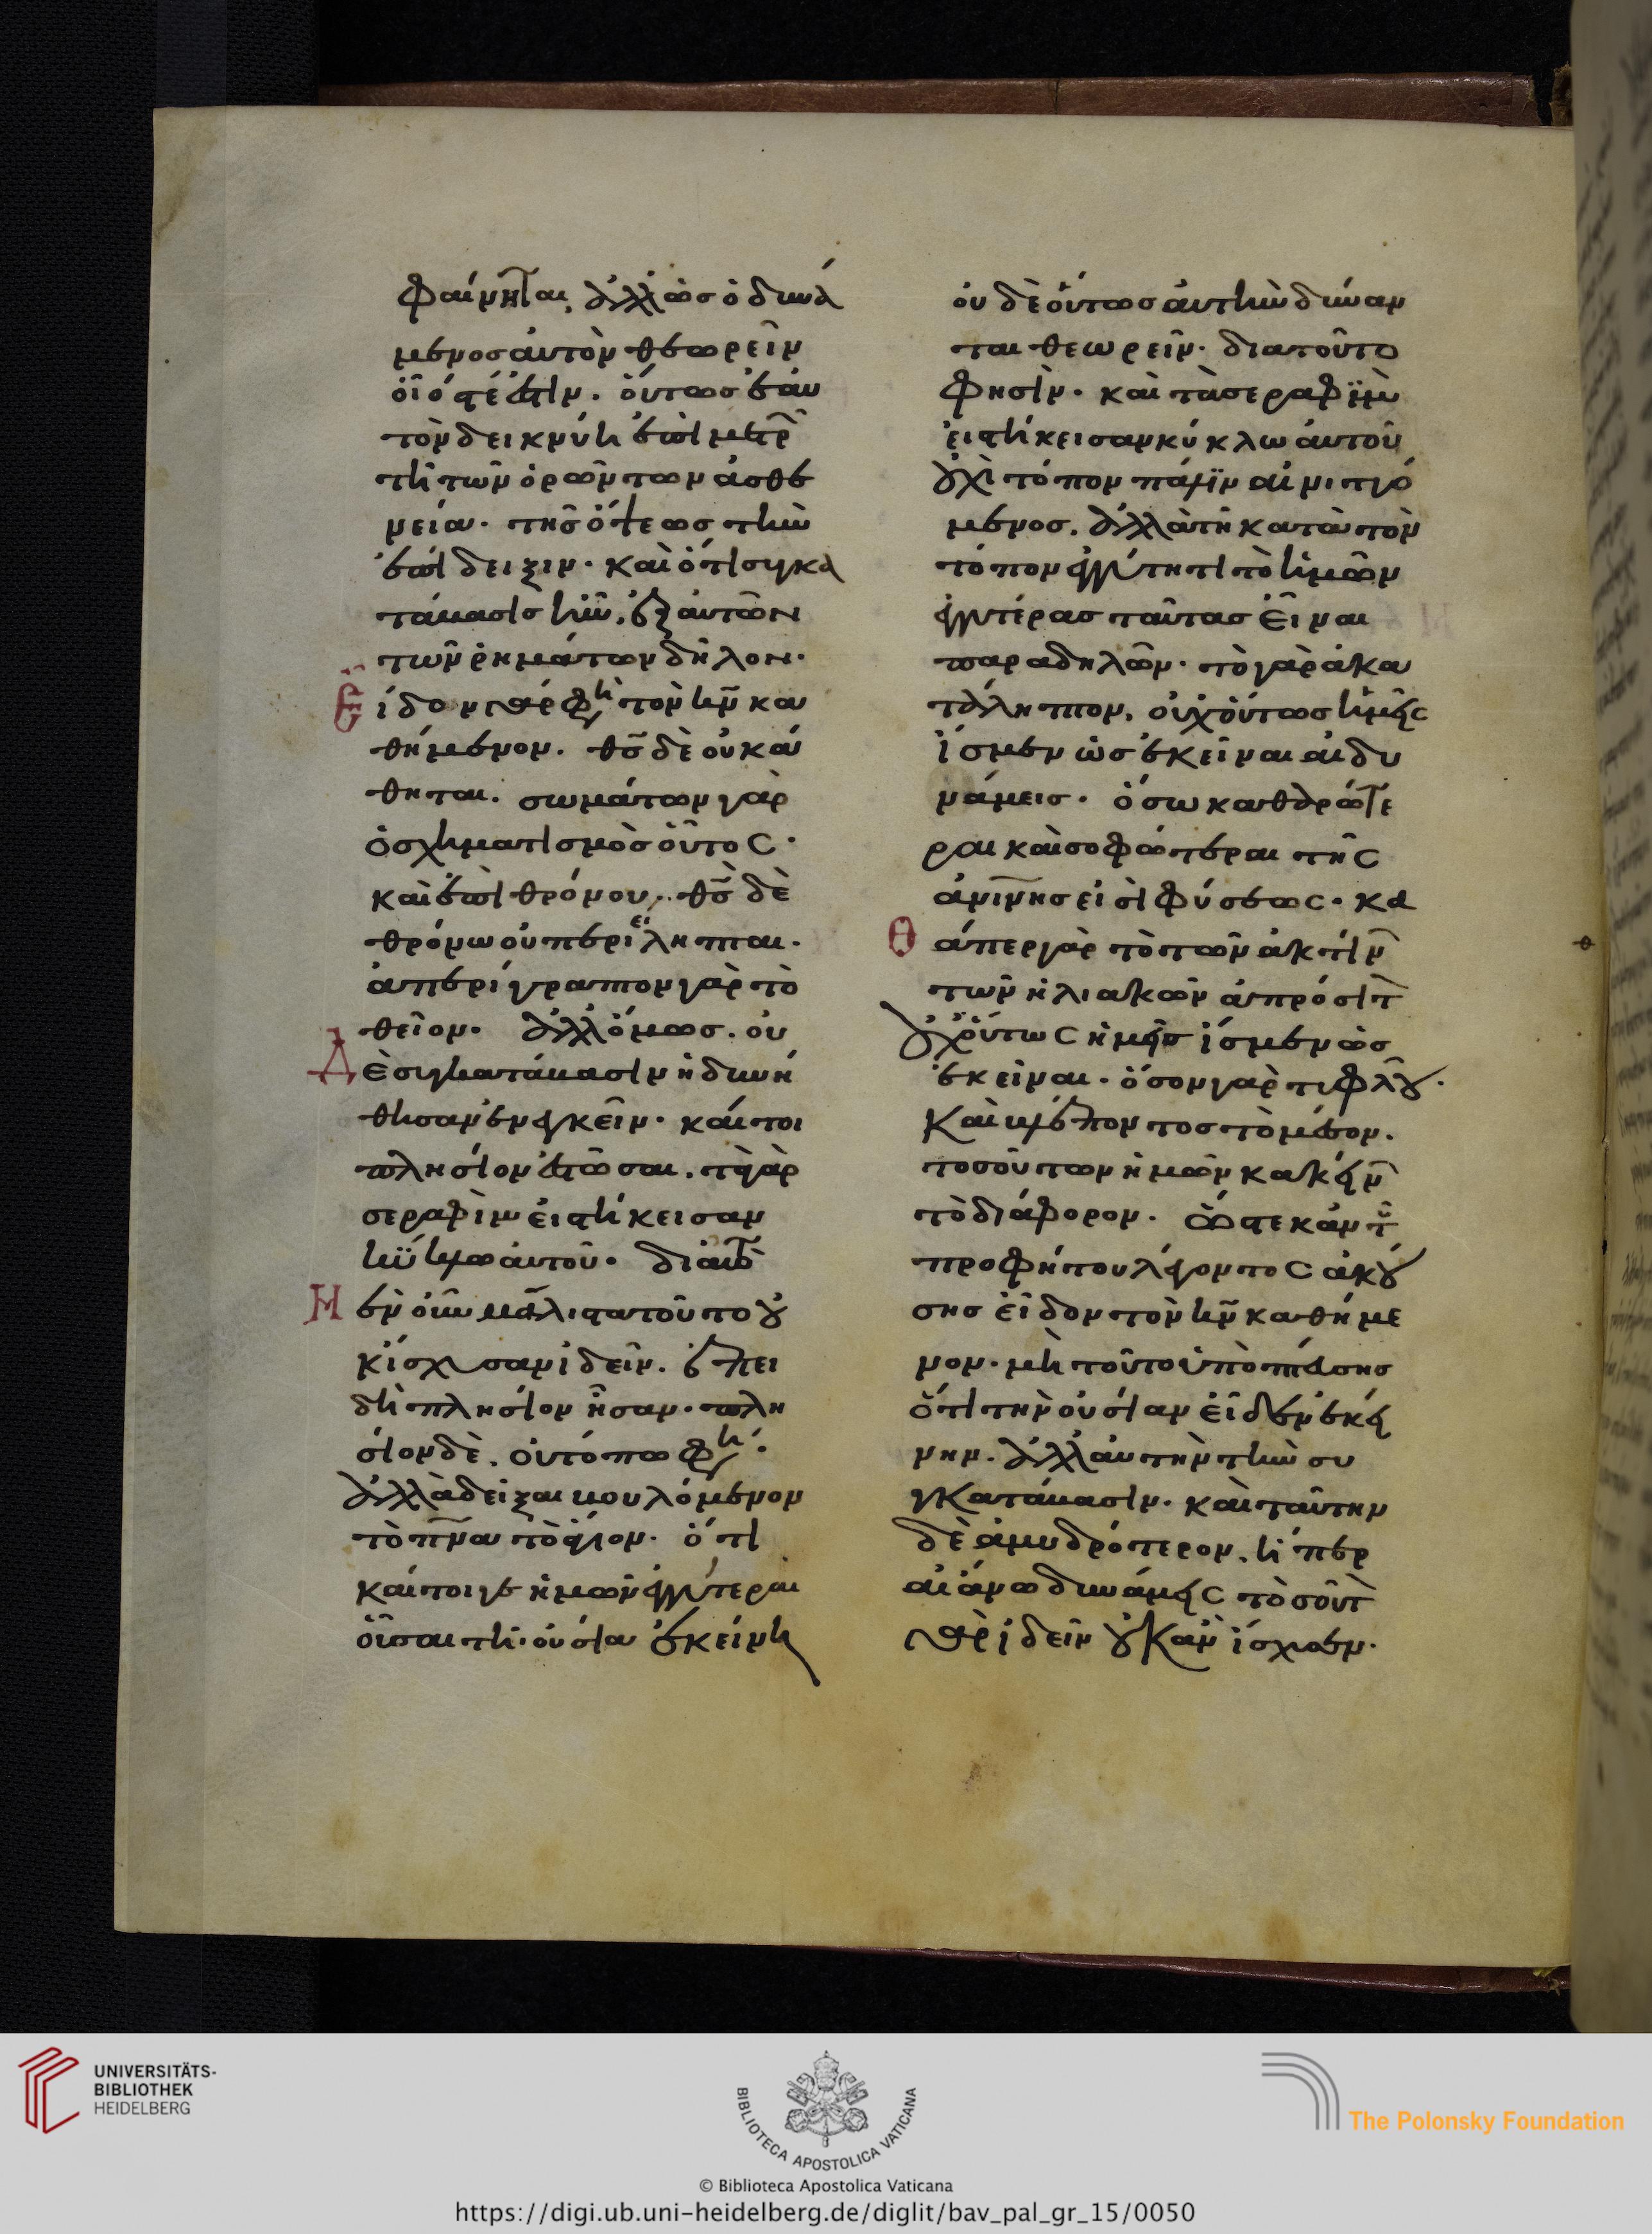 φαίνηται, ἀλλ' ὡς ὁ δυνά
μενος αὐτὸν θεωρεῖν
οἷός τέ ἐστιν. οὕτως ἑαυ
τὸν δεικνύη ἐπιμετρ
τῆ τῶν ὁρώντων ἀσθε
νεία. τῆς ὄψεως τὴν
ἐπίδειξιν. καὶ ὅτι συγκα
τάβασις ἦν, ἐξ αὐτῶν
τῶν ῥημάτων δῆλον.
Εἶδον γάρ φη τὸν κν κα
θήμενον. θς δὲ οὐ κά
θηται. σωμάτων γὰρ
ὁ σχηματισμὸς οὗτος.
καὶ ἐπὶ θρόνου. θς δὲ
θρόνω οὐ περιείληπται.
ἀπερίγραπτον γὰρ τὸ
θεῖον. ἀλλ' ὅμως. οὐ
Δὲ συγκατάβασιν ἠδυνή
θησαν ἐνεγκεῖν. καίτοι
πλησίον ἑστῶσαι. τὰ γὰρ
σεραφὶμ εἱστήκεισαν
κύκλω αὐτοῦ. διαυτὸ
Μὲν οὖν μάλιστα τοῦτο οὐ
κ ἴσχυσαν ἰδεῖν. ἐπει
δὴ πλησίον ἦσαν. πλη
σίον δὲ. οὐ τόπω φη.
ἀλλὰ δεῖξαι βουλόμενον
τὸ πνα τὸ ἅγιον. ὅτι
καίτοιγε ἡμῶν ἐγγύτεραι
οὖσαι τῆ οὐσία ἐκείνη
οὐδὲ οὕτως αὐτὴν δύναν
ται θεωρεῖν. διὰ τοῦτο
φησὶν. καὶ τὰ σεραφὶμ
εἱστήκεισαν κύκλω αὐτοῦ
οὐχὶ τόπον πάλιν αἰνιττό
μενος. ἀλλὰ τῆ κατὰ τὸν
τόπον ἐγγύτητι τὸ ἡμῶν
ἐγγυτέρας ταύτας εἶναι
παραδηλῶν. τὸ γὰρ ἀκα
τάληπτον, οὐχ οὕτως ἡμεῖς
ἴσμεν ὡς ἐκεῖναι αἱ δυ
νάμεις. ὅσω καθαρώτε
ραι καὶ σοφώτεραι τῆς
ἀνίνης εἰσὶ φύσεως. κα
Θάπερ γὰρ τὸ τῶν ἀκτίν
τῶν ἡλιακῶν ἀπρόσιτ
οὐχ οὕτως ἡμεῖς ἴσμεν ὡς
ἐκεῖναι. ὅσον γὰρ τυφλοῦ.
καὶ βλέποντος τὸ μέσον.
τοσοῦτον ἡμῶν κακείν
τὸ διάφορον. ὥστε κἂν τοῦ
προφήτου λέγοντος ἀκού
σης εἶδον τὸν κν καθήμε
νον. μὴ τοῦτο ὑποπτεύσης
ὅτι τὴν οὐσίαν εἶδεν ἐκεί
νην. ἀλλ' αὐτὴν τὴν συ
γκατάβασιν. καὶ ταύτην
δὲ ἀμυδρότερον, ἤπερ
αἱ ἄνω δυνάμεις τοσοῦτ
γὰρ ἰδεῖν οὐκ ἂν ἴσχυσεν.
UNIVERSITÄTS-
BIBLIOTHEK
HEIDELBERG
BIBLIOTECA APOSTOLICA VATICANA
The Polonsky Foundation
© Biblioteca Apostolica Vaticana
https://digi.ub.uni-heidelberg.de/diglit/bav_pal_gr_15/0050